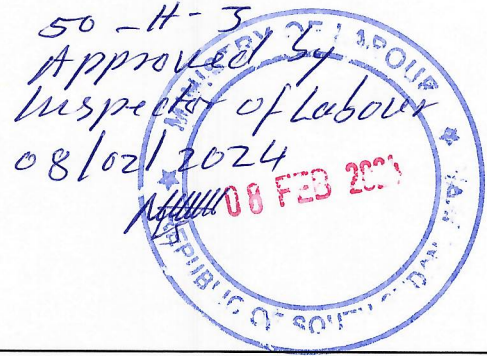 50-H-3
Approved by
Inspector of Labour
08/02/2024
08 FEB
MINISTRY OF LABOUR
REPUBLIC OF SOUTH SUDAN